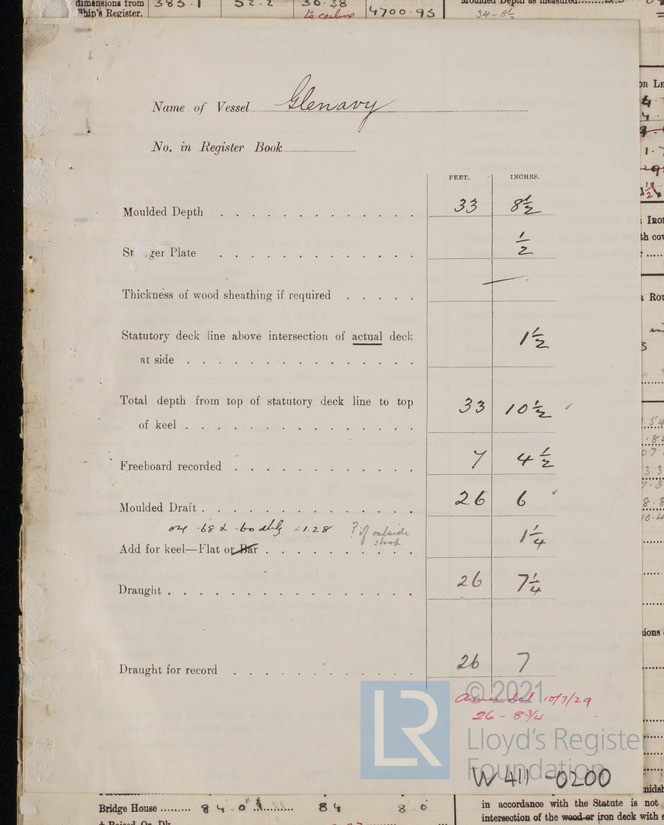 dimensions from 383.1 52.2 30.38 Moulded Depth as measured
Ship's Register. to ceiling 4700.95 34-8½
Name of Vessel Glenavy
No. in Register Book
FEET. INCHES.
Moulded Depth 33 8½
St ger Plate ½
Thickness of wood sheathing if required —
Statutory deck line above intersection of actual deck 1½
at side
Total depth from top of statutory deck line to top 33 10½
of keel
Freeboard recorded 7 4½
Moulded Draft 26 6
.68 & .60 = 1.28 ? if outside
strap
Add for keel—Flat or Bar 1¼
Draught 26 7¼
Draught for record 26 7
Amended 10/7/29
26 - 8¾
LR
© 2021
Lloyd's Register
Foundation
W411-0200
Bridge House 84.0 84 80
in accordance with the Statute is not
intersection of the wood or iron deck with